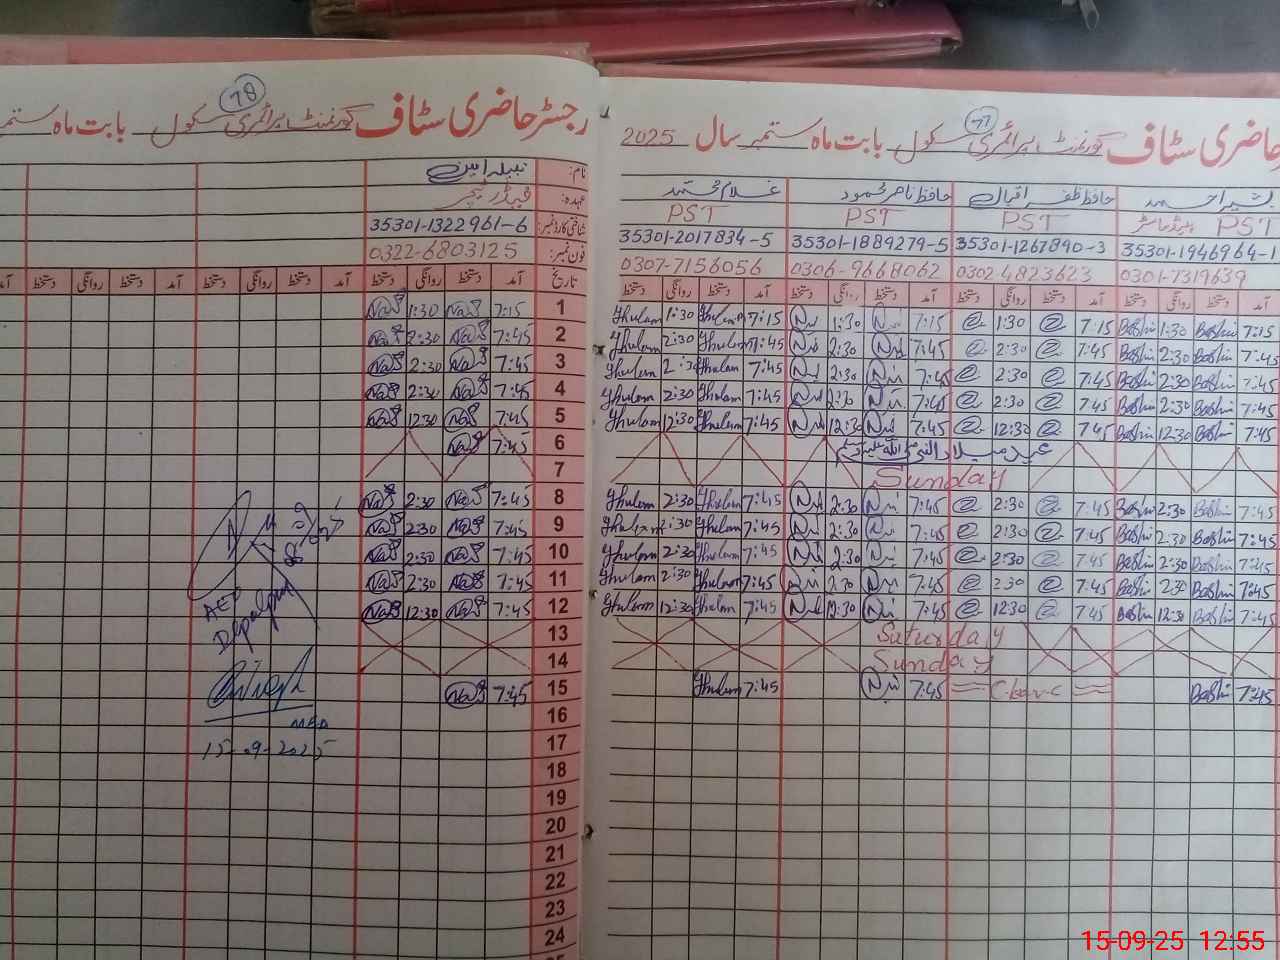 حاضری سٹاف گورنمنٹ پرائمری سکول بابت ماہ ستمبر سال 2025
77
بشیر احمد حافظ ظفر اقبال حافظ ناصر محمود غلام محمد
PST ہیڈ ماسٹر PST PST PST
35301-2017834-5 35301-1889279-5 35301-1267890-3 35301-1946964-1
0307-7156056 0306-9668062 0302-4823623 0301-7319639
آمد دستخط روانگی دستخط آمد دستخط روانگی دستخط آمد دستخط روانگی دستخط آمد دستخط روانگی دستخط
Ghulam 1:30 Ghulam 7:15 1:30 7:15 1:30 7:15 Bashir 1:30 Bashir 7:15
Ghulam 2:30 Ghulam 7:45 2:30 7:45 2:30 7:45 Bashir 2:30 Bashir 7:45
Ghulam 2:30 Ghulam 7:45 2:30 7:45 2:30 7:45 Bashir 2:30 Bashir 7:45
Ghulam 2:30 Ghulam 7:45 2:30 7:45 2:30 7:45 Bashir 2:30 Bashir 7:45
Ghulam 12:30 Ghulam 7:45 12:30 7:45 12:30 7:45 Bashir 12:30 Bashir 7:45
عید میلاد النبی صلی اللہ علیہ وسلم
Sunday
Ghulam 2:30 Ghulam 7:45 2:30 7:45 2:30 7:45 Bashir 2:30 Bashir 7:45
Ghulam 2:30 Ghulam 7:45 2:30 7:45 2:30 7:45 Bashir 2:30 Bashir 7:45
Ghulam 2:30 Ghulam 7:45 2:30 7:45 2:30 7:45 Bashir 2:30 Bashir 7:45
Ghulam 2:30 Ghulam 7:45 2:30 7:45 2:30 7:45 Bashir 2:30 Bashir 7:45
Ghulam 12:30 Ghulam 7:45 12:30 7:45 12:30 7:45 Bashir 12:30 Bashir 7:45
Saturday
Sunday
Ghulam 7:45 7:45 Bashir 7:45
رجسٹر حاضری سٹاف گورنمنٹ پرائمری سکول بابت ماہ
78
نام: نبیلہ امین
عہدہ:
شناختی کارڈ نمبر: 35301-1322961-6
فون نمبر: 0322-6803125
تاریخ آمد دستخط روانگی دستخط آمد دستخط روانگی دستخط آمد دستخط روانگی دستخط آمد
1:30 7:15 1
2:30 7:45 2
2:30 7:45 3
2:30 7:45 4
12:30 7:45 5
7:45 6
7
2:30 7:45 8
2:30 7:45 9
2:30 7:45 10
2:30 7:45 11
12:30 7:45 12
13
14
7:45 15
16
17
18
19
20
21
22
23
24
AEO
Depalpur
15-09-2025
15-09-25 12:55